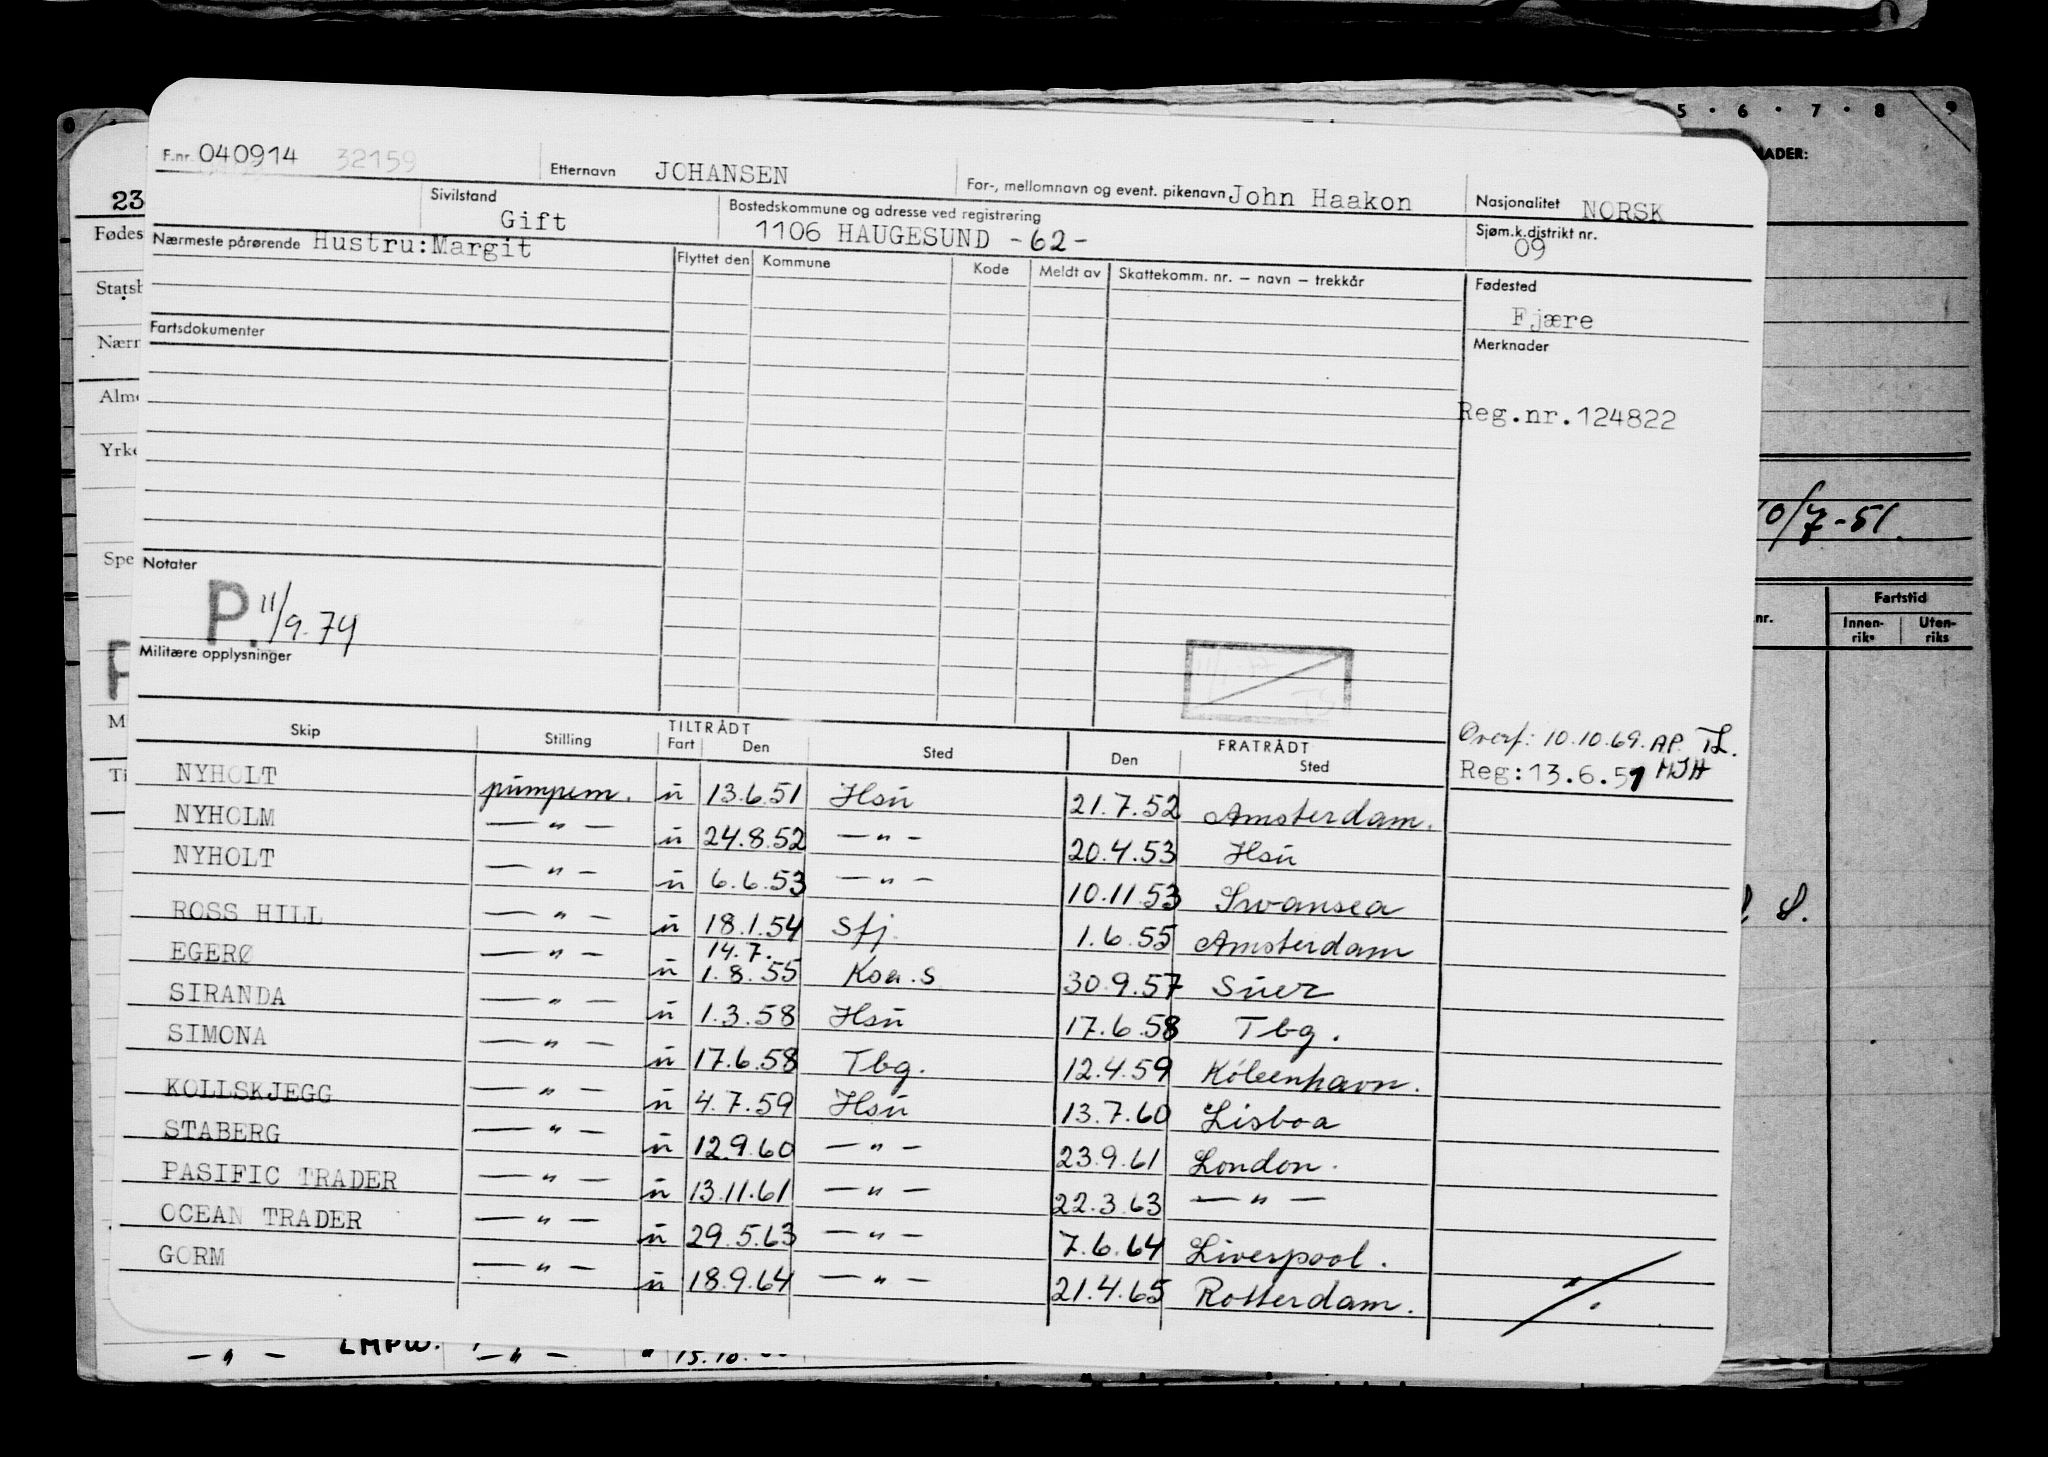 5 · 6 · 7 · 8 · 9
ADER:
F.nr. 040914 32159 Etternavn JOHANSEN For-, mellomnavn og event. pikenavn John Haakon Nasjonalitet NORSK
23 Sivilstand Gift Bostedskommune og adresse ved registrering 1106 HAUGESUND -62- Sjøm.k.distrikt nr. 09
Fødes Nærmeste pårørende Hustru: Margit Flyttet den Kommune Kode Meldt av Skattekomm. nr. – navn – trekkår Fødested
Statsb Fjære
Nærm Fartsdokumenter Merknader
Alme Reg.nr.124822
Yrke
10/7-51.
Spe Notater
P. 11/9.74
nr. Fartstid
Innen-riks Uten-riks
Militære opplysninger
M Skip Stilling TILTRÅDT FRATRÅDT Overf: 10.10.69. AP. TL.
Ti Fart Den Sted Den Sted Reg:13.6.51 MJH
NYHOLT pumpem. u 13.6.51 Hsu 21.7.52 Amsterdam.
NYHOLM — " — u 24.8.52 — " — 20.4.53 Hsu
NYHOLT — " — u 6.6.53 — " — 10.11.53 Swansea
ROSS HILL — " — u 18.1.54 Sfj. 1.6.55 Amsterdam
14.7.
EGERØ — " — u 1.8.55 Koa.S 30.9.57 Suez
SIRANDA — " — u 1.3.58 Hsu 17.6.58 Tbg.
SIMONA — " — u 17.6.58 Tbg. 12.4.59 København.
KOLLSKJEGG — " — u 4.7.59 Hsu 13.7.60 Lisboa
STABERG — " — u 12.9.60 — " — 23.9.61 London.
PASIFIC TRADER — " — u 13.11.61 — " — 22.3.63 — " —
OCEAN TRADER — " — u 29.5.63 — " — 7.6.64 Liverpool.
GORM — " — u 18.9.64 — " — 21.4.65 Rotterdam.
— " — LMPW. — " — " 15.10.